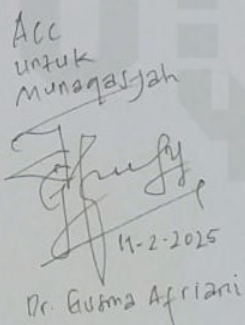 Acc
untuk
Munaqasyah
11-2-2025
Dr. Gusma Afriani